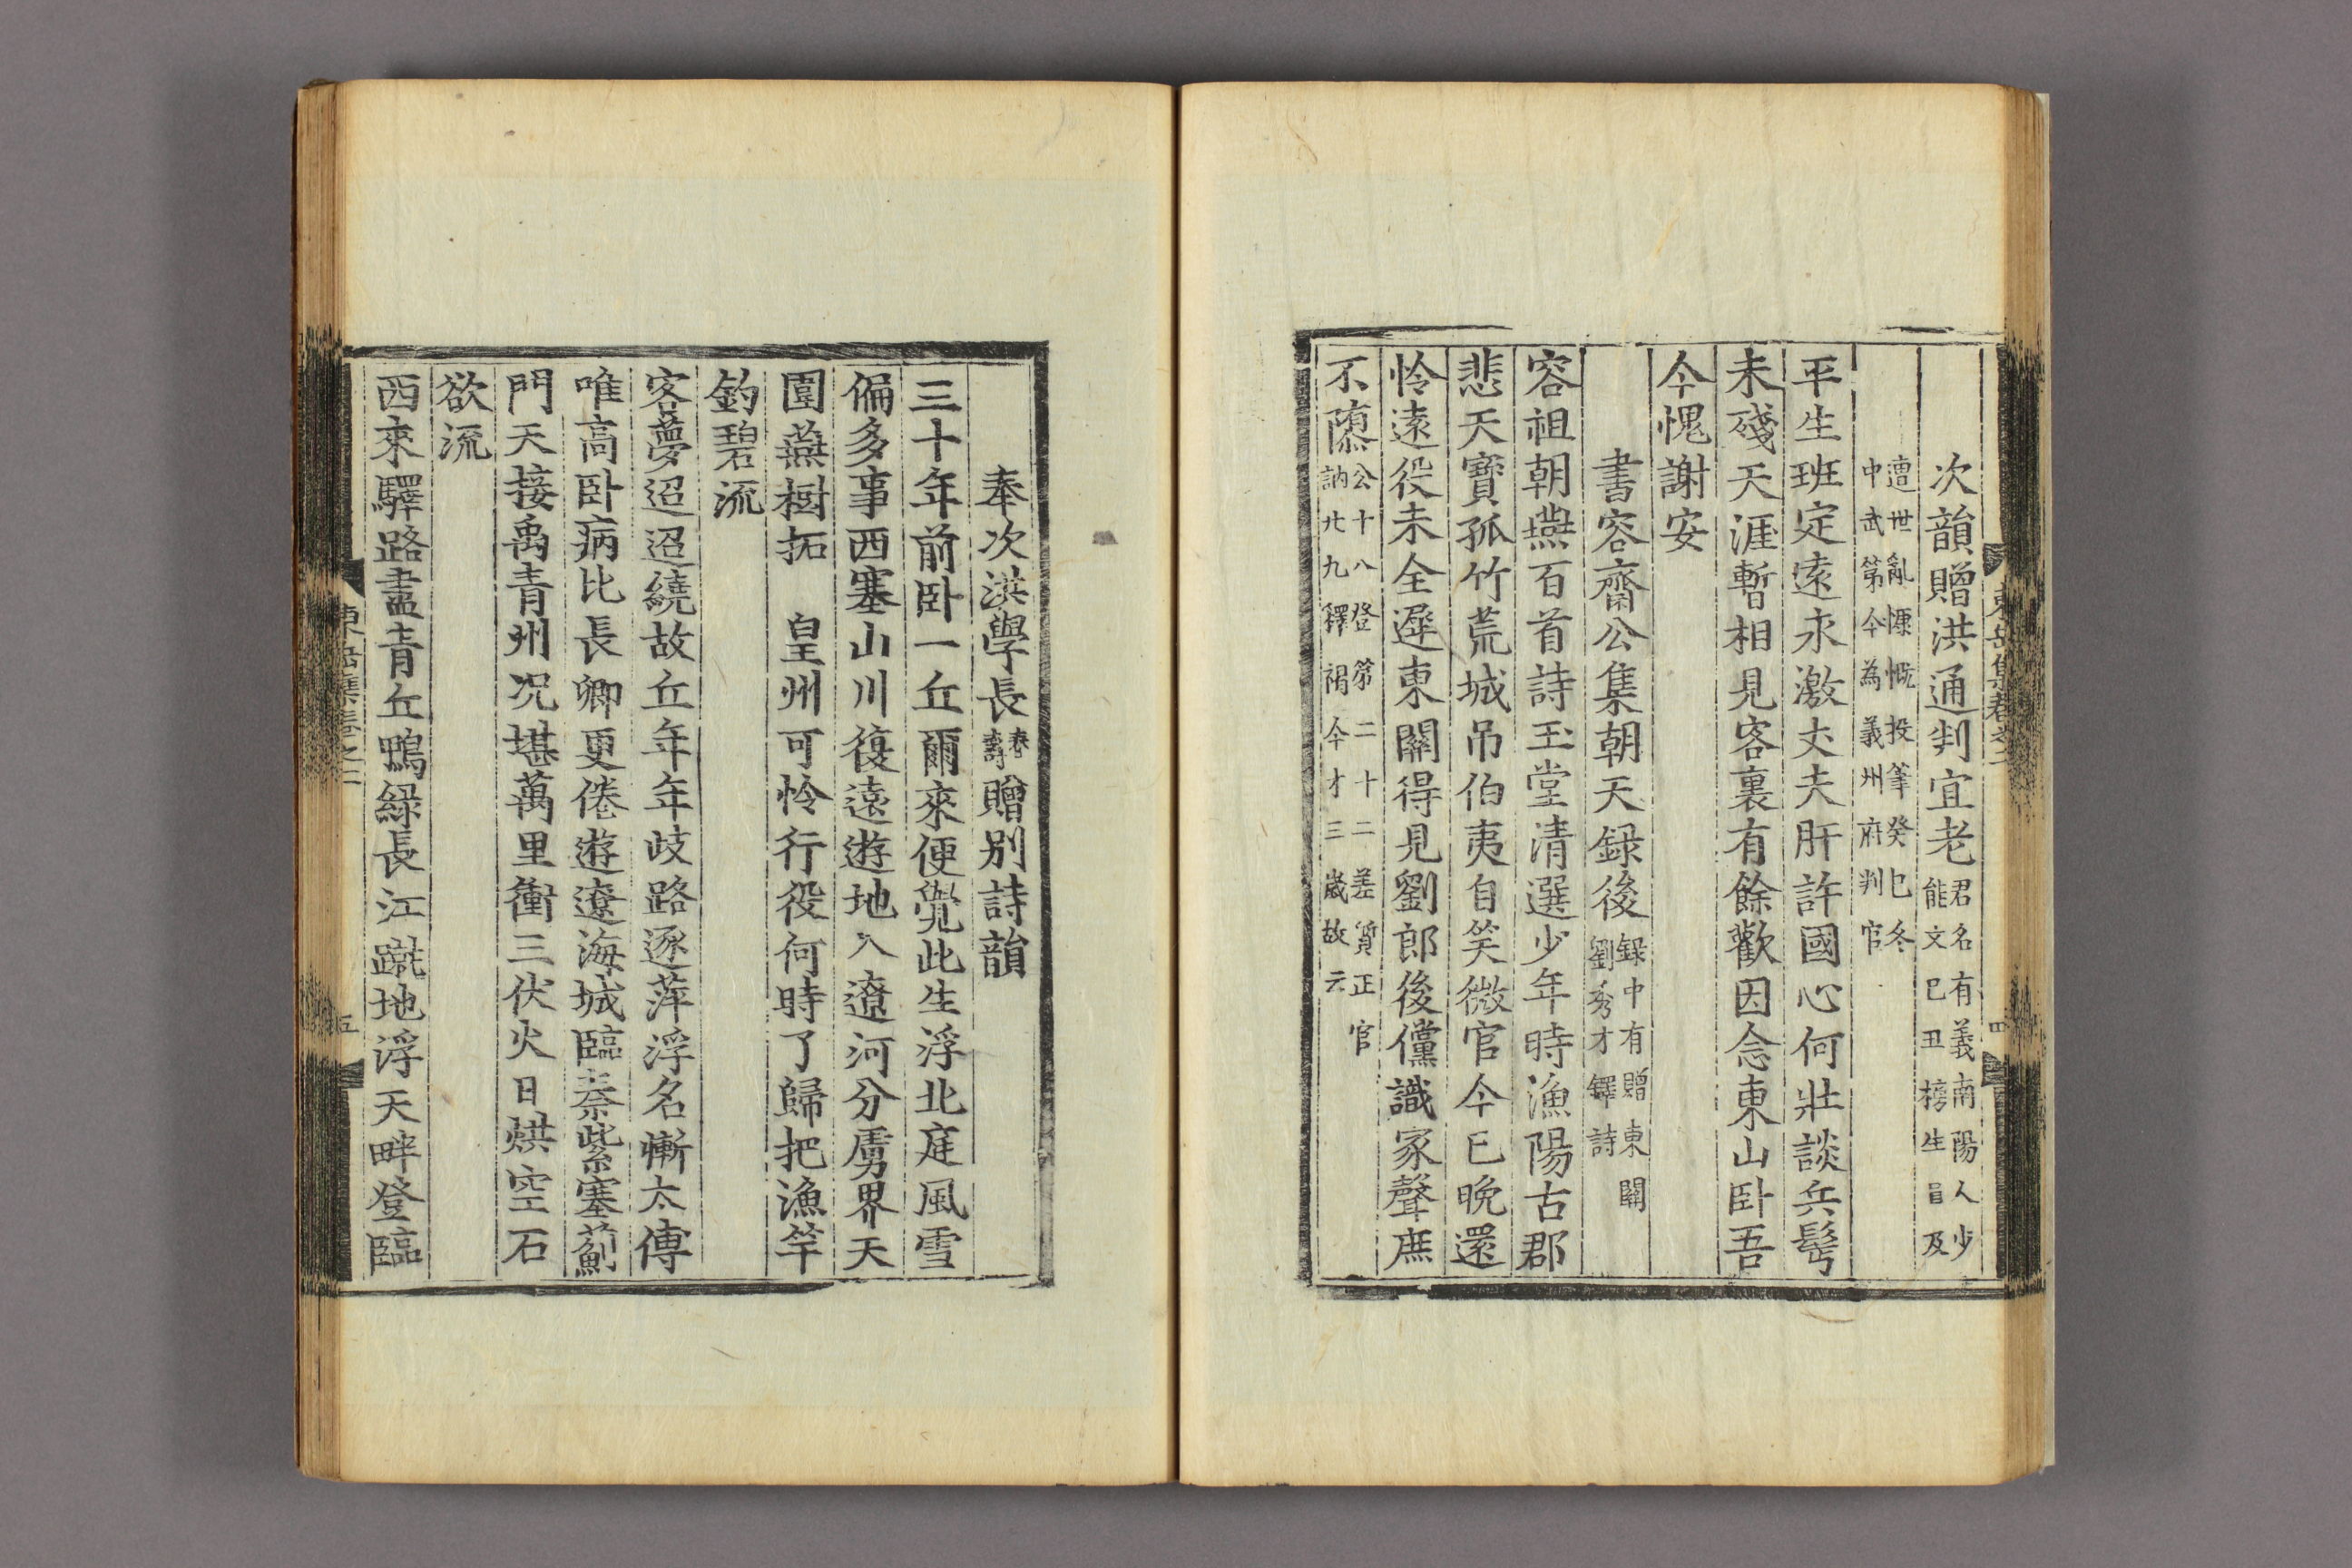 次韻贈洪通判宜老君名有義南陽人少能文己丑榜生員及
遭世亂慷慨投筆癸巳冬中武第今為義州府判官
平生班定遠永激丈夫肝許國心何壯談兵髩
未殘天涯暫相見客裏有餘歡因念東山卧吾
今愧謝安
書容齋公集朝天録後録中有贈東關劉秀才鐸詩
容祖朝燕百首詩玉堂清選少年時漁陽古郡
悲天寶孤竹荒城吊伯夷自笑微官今已晚還
怜遠役未全遲東關得見劉郎後儻識家聲庶
不隳公十八登第二十二差質正官訥北九釋褐今才三歲故云
奉次洪學長春壽贈別詩韻
三十年前卧一丘爾來便覺此生浮北庭風雪
偏多事西塞山川復遠遊地入遼河分虜界天
圍燕樹拓　皇州可怜行役何時了歸把漁竿
釣碧流
客夢迢迢繞故丘年年歧路逐萍浮名慚太傅
唯高卧病比長卿更倦遊遼海城臨秦紫塞薊
門天接禹青州況堪萬里衝三伏火日烘空石
欲流
西來驛路盡青丘鴨緑長江蹴地浮天畔登臨